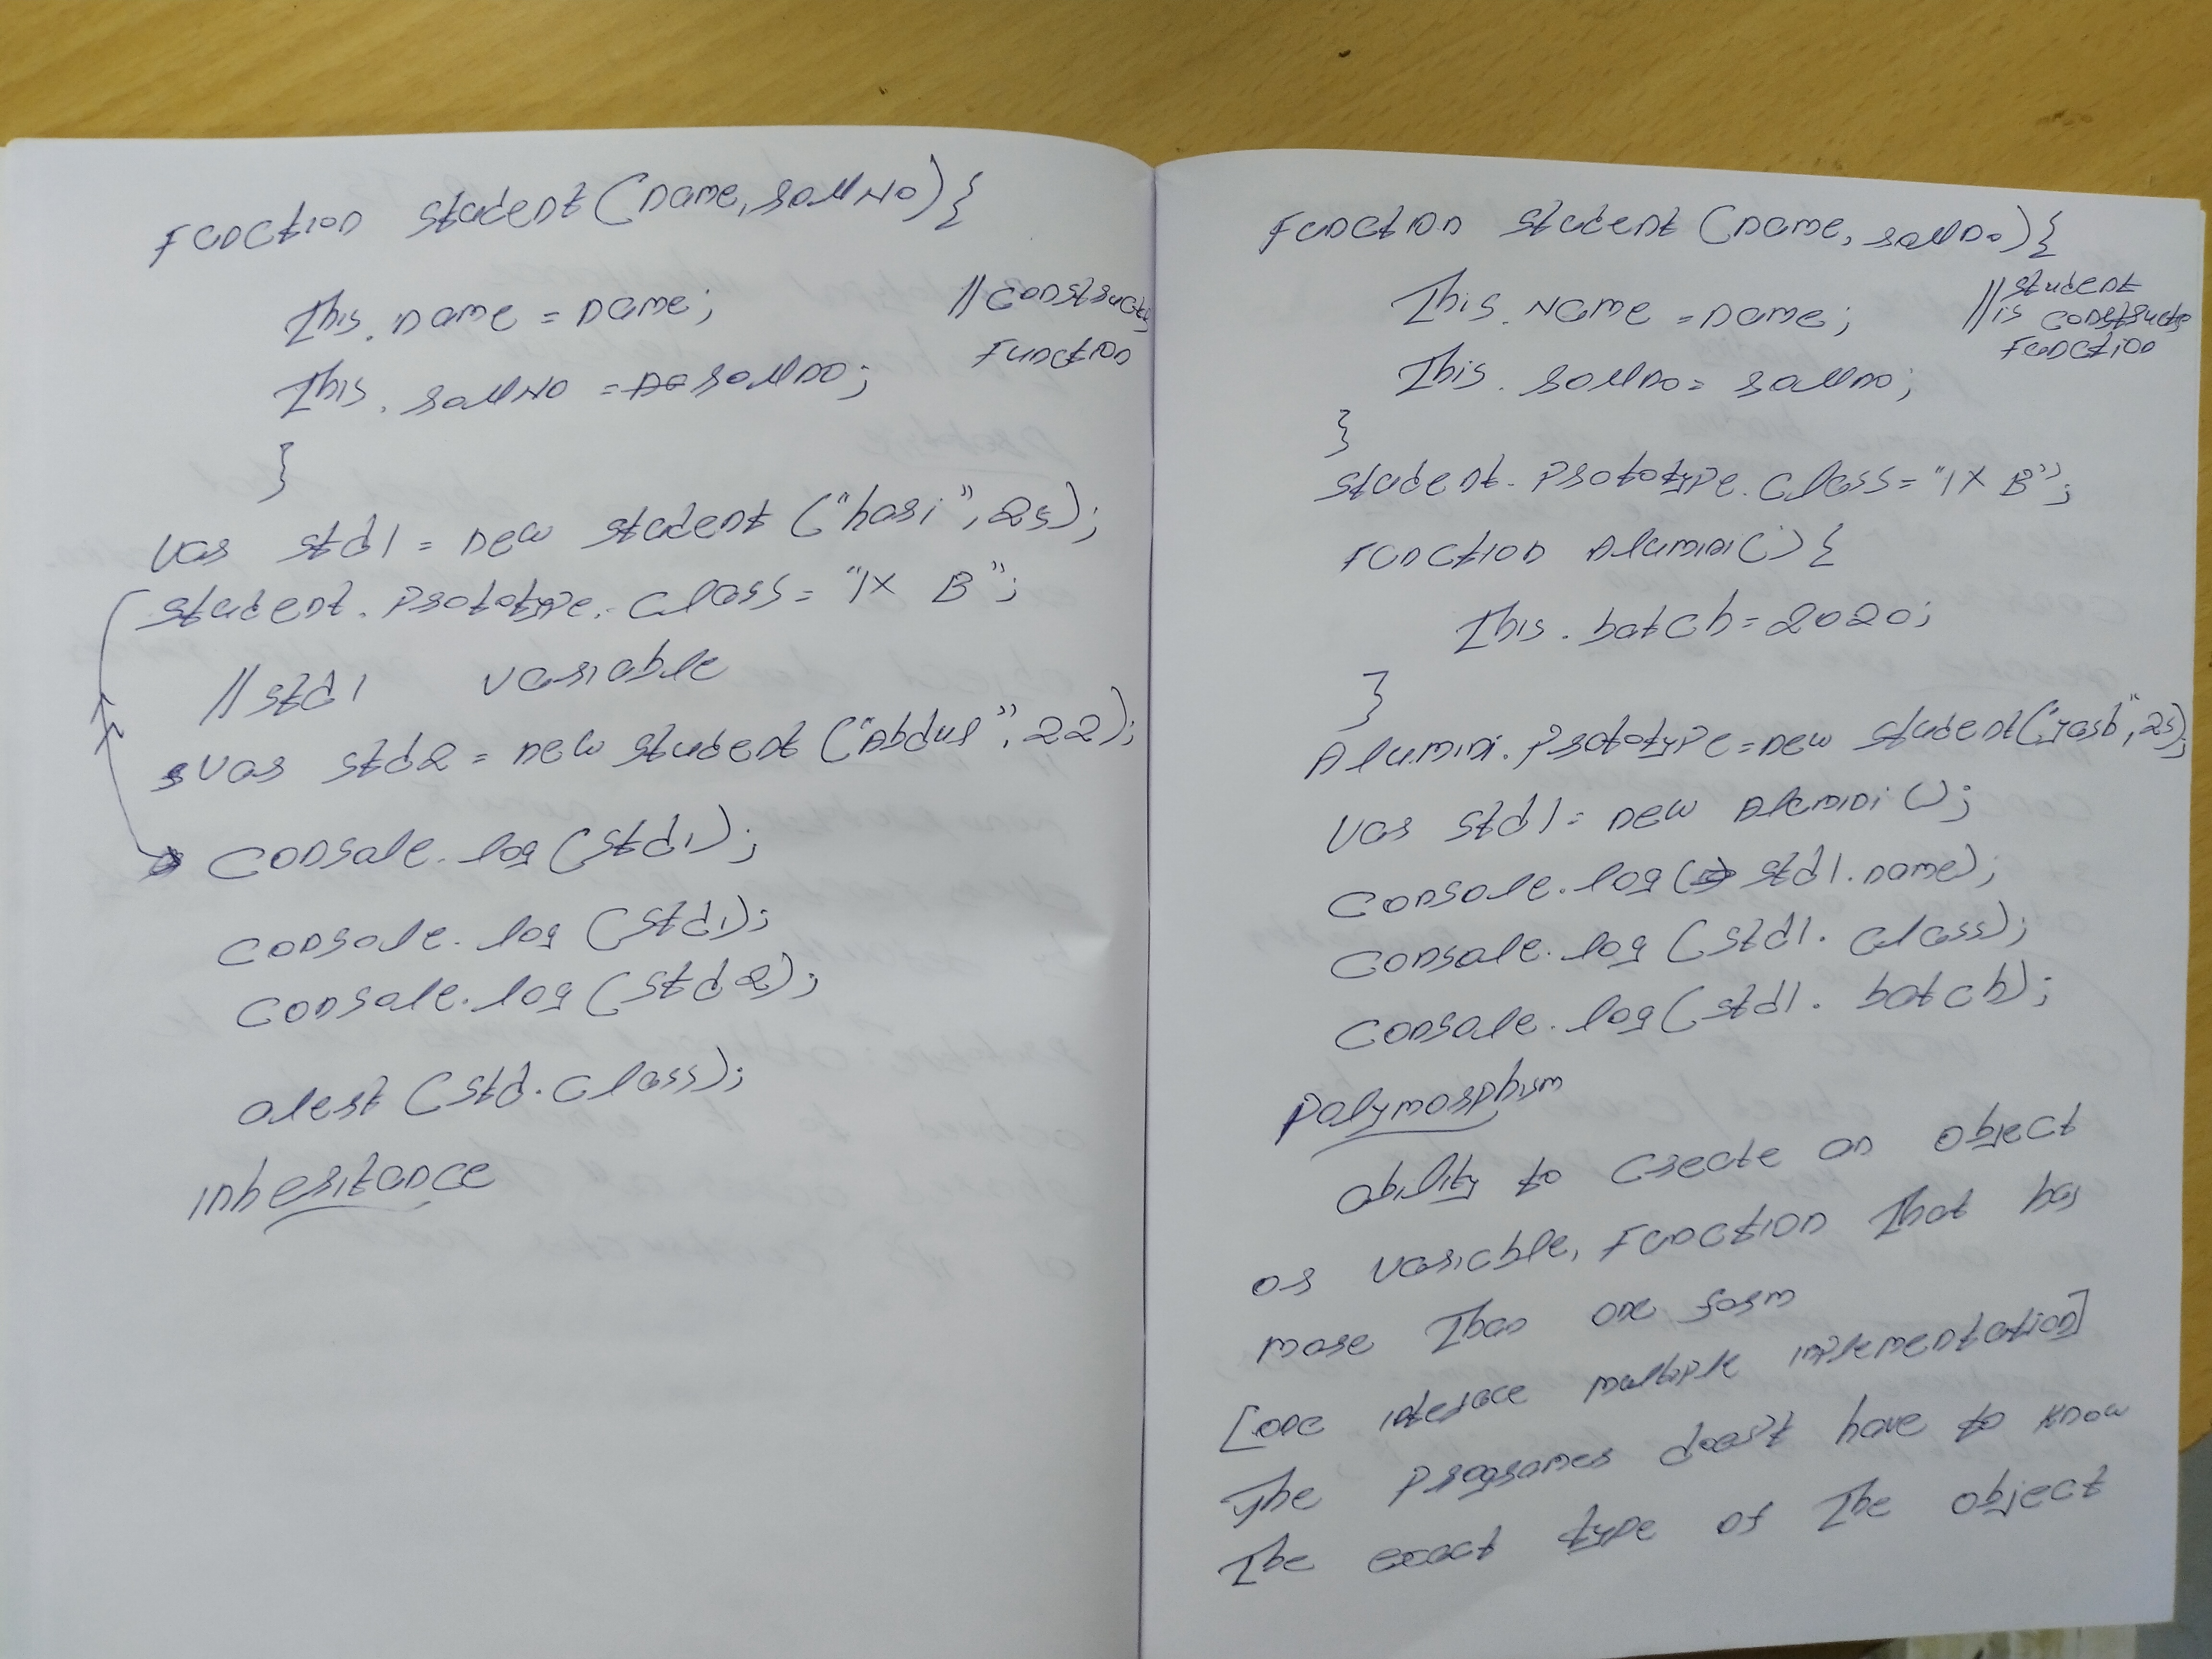 Function student(name, rollNo){
This.name = name; //constructor
This.rollNo = rollno; Function
}
var std1 = new student("hari", 25);
student.prototype.class = "IX B";
//std1 variable
var std2 = new student("Abdul", 22);
console.log(std1);
console.log(std1);
console.log(std2);
alert(std.class);
inheritance
Function student(name, rollno){
This.Name = name; //student
is constructor
This.rollno = rollno; Function
}
student.prototype.class = "IX B";
Function Alumini(){
This.batch = 2020;
}
Alumini.prototype = new student("yash", 25);
var std1 = new Alumini();
console.log(std1.name);
console.log(std1.class);
console.log(std1.batch);
Polymorphism
ability to create an object
or variable, Function That has
more Than one form
[one inteface multiple implementation]
The programer doesn't have to know
The exact type of The object